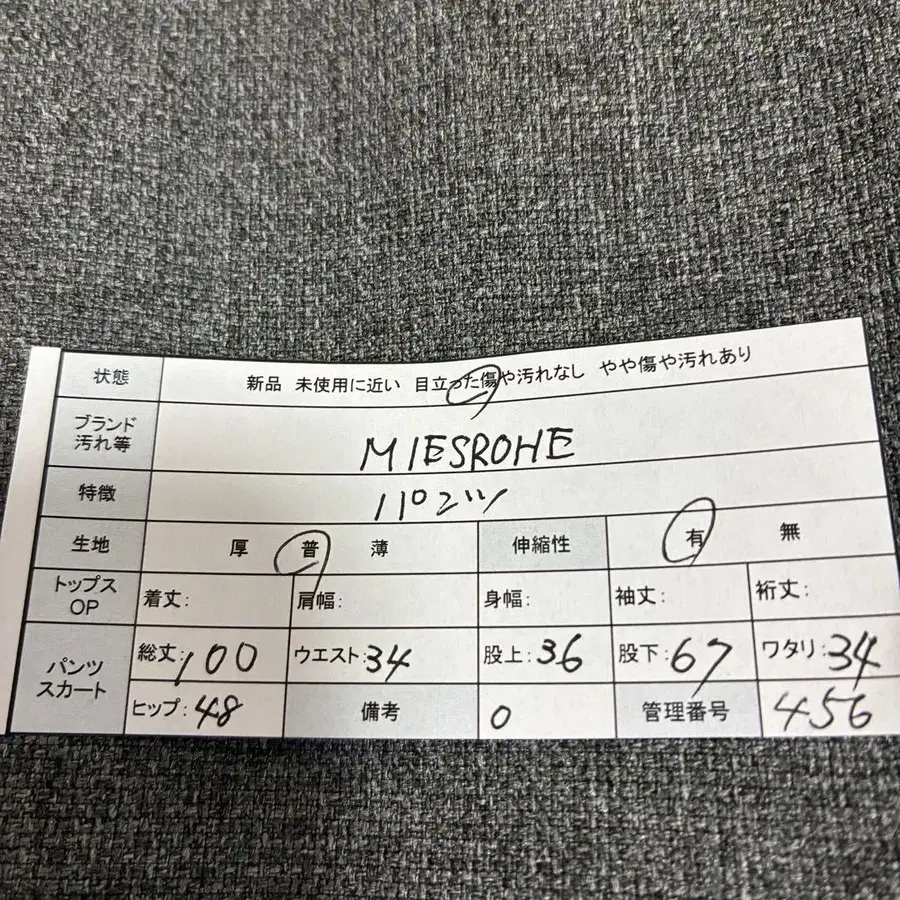 状態 新品 未使用に近い 目立った傷や汚れなし やや傷や汚れあり
ブランド
汚れ等 MIESROHE
特徴 パンツ
生地 厚 普 薄 伸縮性 有 無
トップス
OP 着丈: 肩幅: 身幅: 袖丈: 裄丈:
パンツ
スカート 総丈:100 ウエスト:34 股上:36 股下:67 ワタリ:34
ヒップ:48 備考 0 管理番号 456